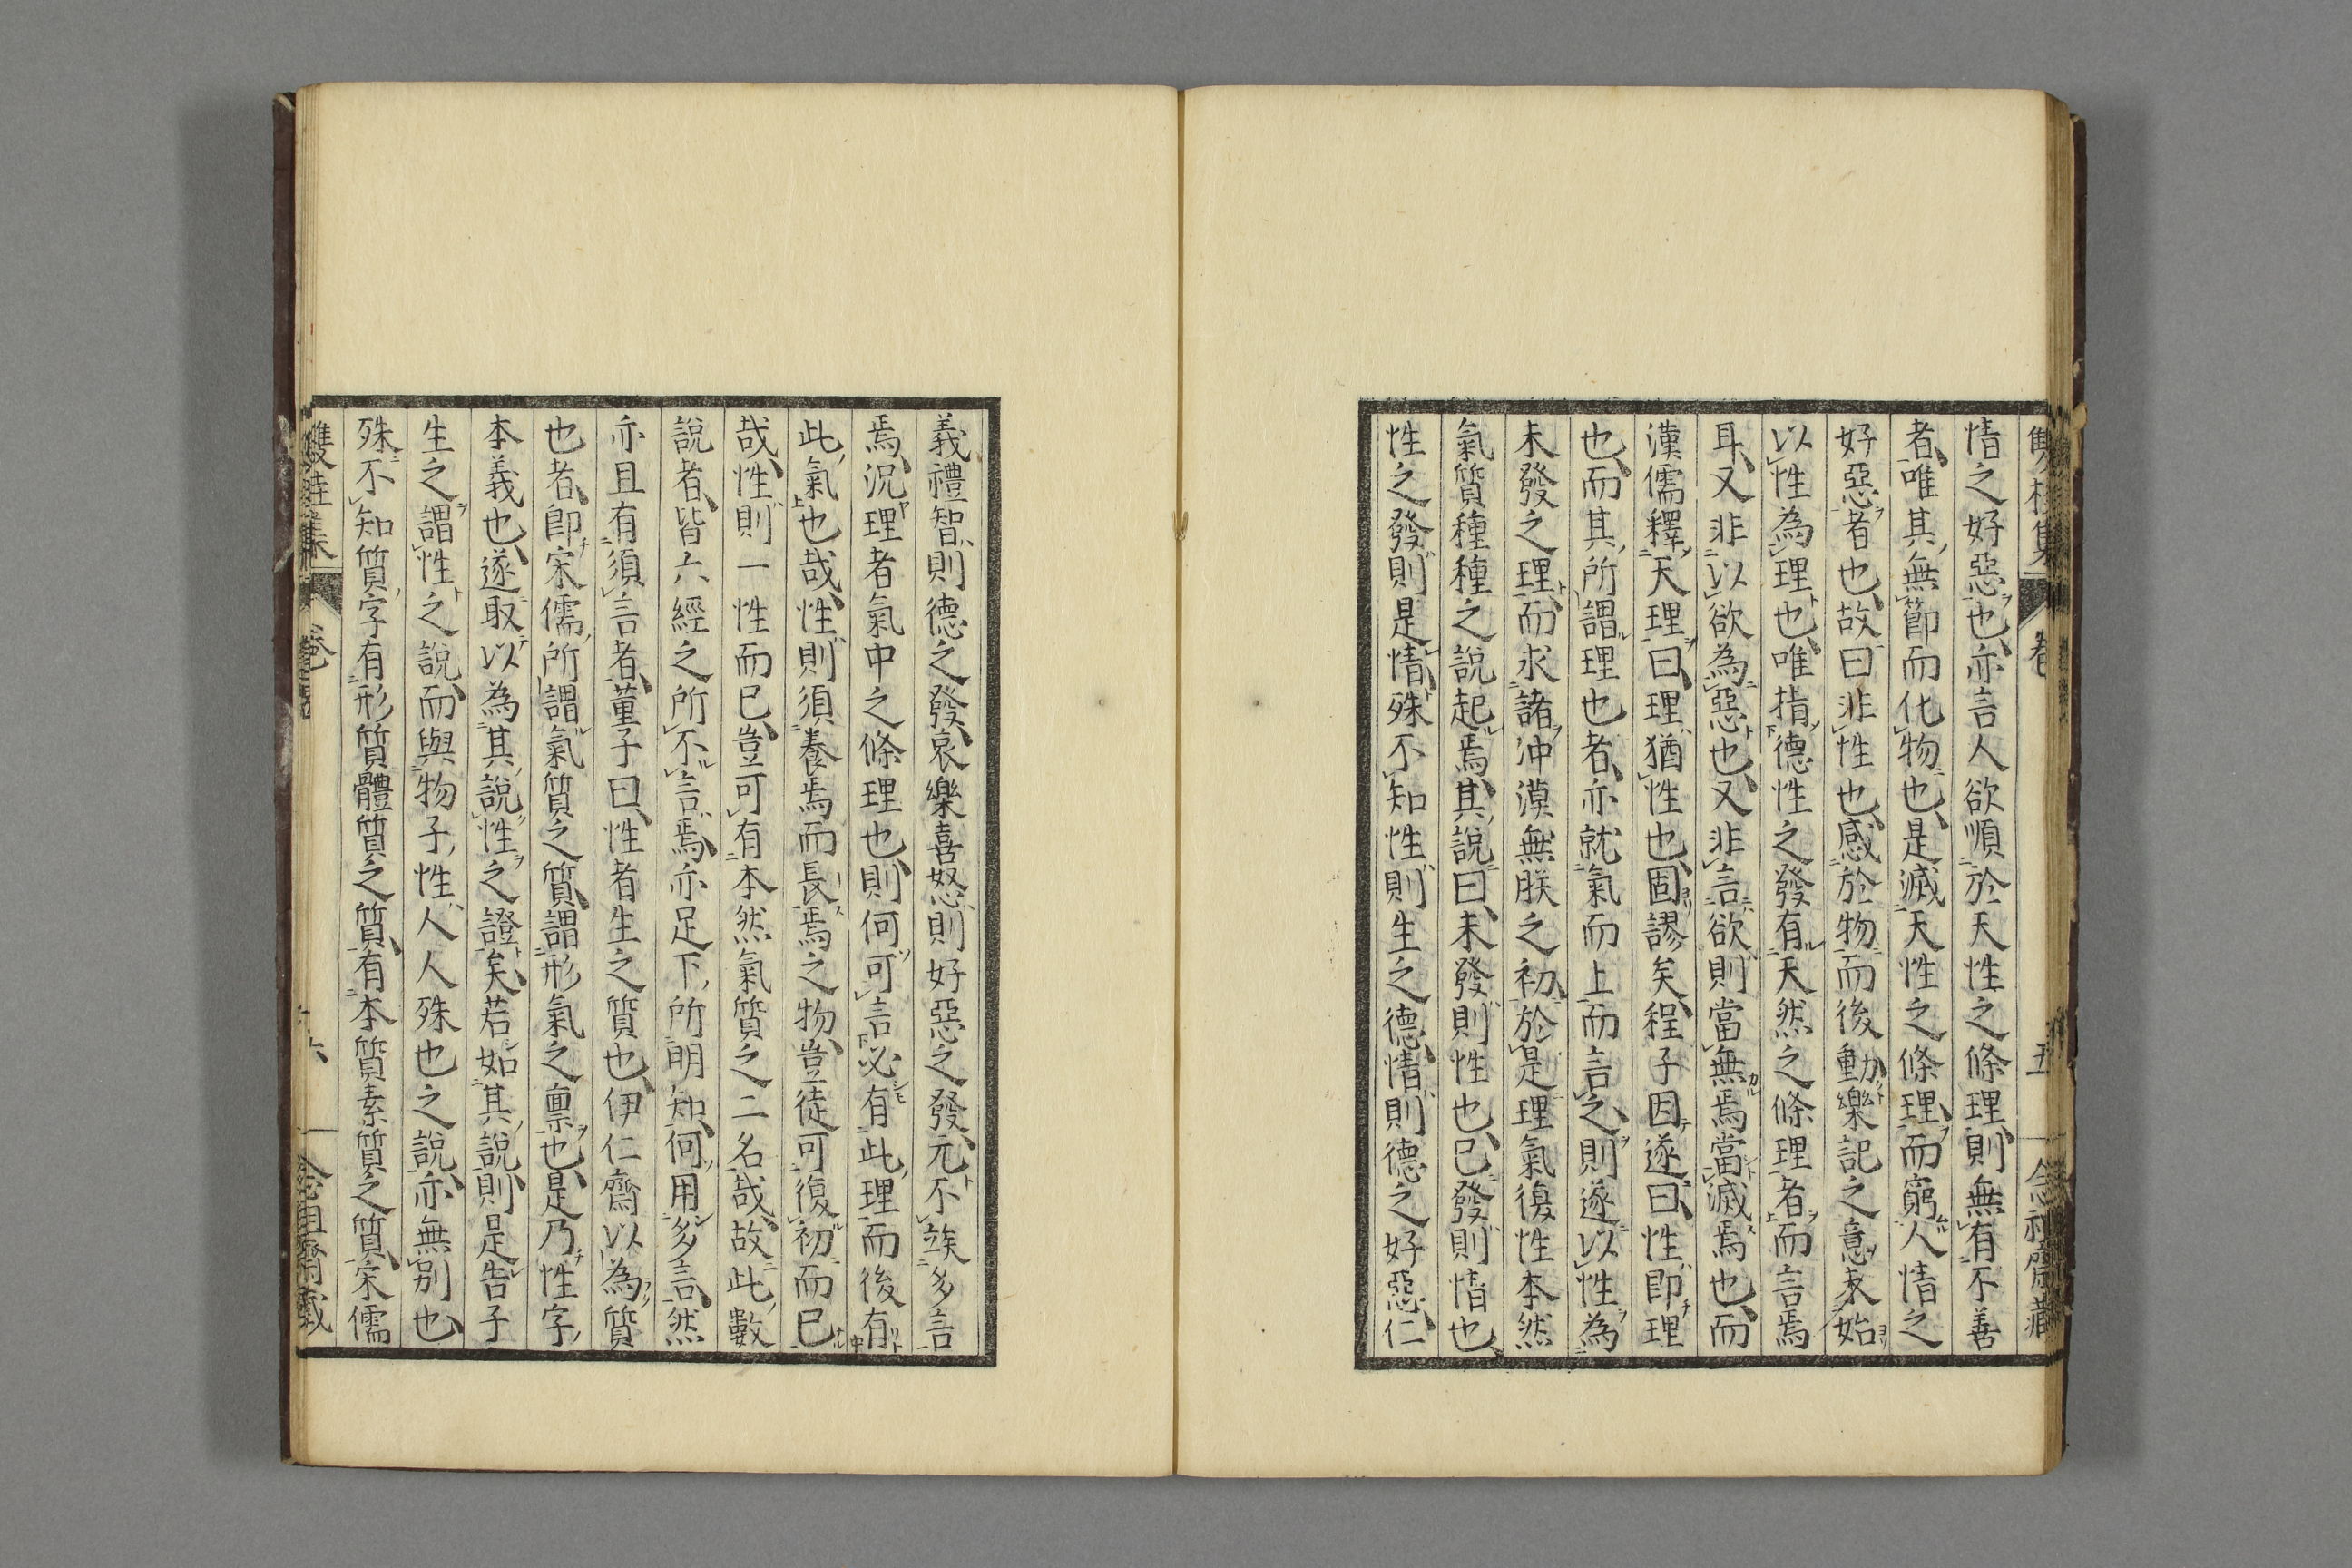 情之好惡也亦言人欲順於天性之條理則無有不善
者唯其無節而化物也是滅天性之條理而窮人情之
好惡者也故曰非性也感於物而後動樂記之意未始
以性為理也唯指德性之發有天然之條理者而言焉
耳又非以欲為惡也又非言欲則當無焉當滅焉也而
漢儒釋天理曰理猶性也固謬矣程子因遂曰性即理
也而其所謂理也者亦就氣而上而言之則遂以性為
未發之理而求諸冲漠無朕之初於是理氣復性本然
氣質種種之說起焉其說曰未發則性也已發則情也
性之發則是情殊不知性則生之德情則德之好惡仁
義禮智則德之發哀樂喜怒則好惡之發元不竢多言
焉況理者氣中之條理也則何可言必有此理而後有
此氣也哉性則須養焉而長焉之物豈徒可復初而已
哉性則一性而已豈可有本然氣質之二名哉故此數
說者皆六經之所不言焉亦足下所明知何用多言然
亦且有須言者董子曰性者生之質也伊仁齋以為質
也者即宋儒所謂氣質之質謂形氣之稟也是乃性字
本義也遂取以為其說性之證矣若如其說則是告子
生之謂性之說而與物子性人人殊也之說亦無別也
殊不知質字有形質體質之質有本質素質之質宋儒